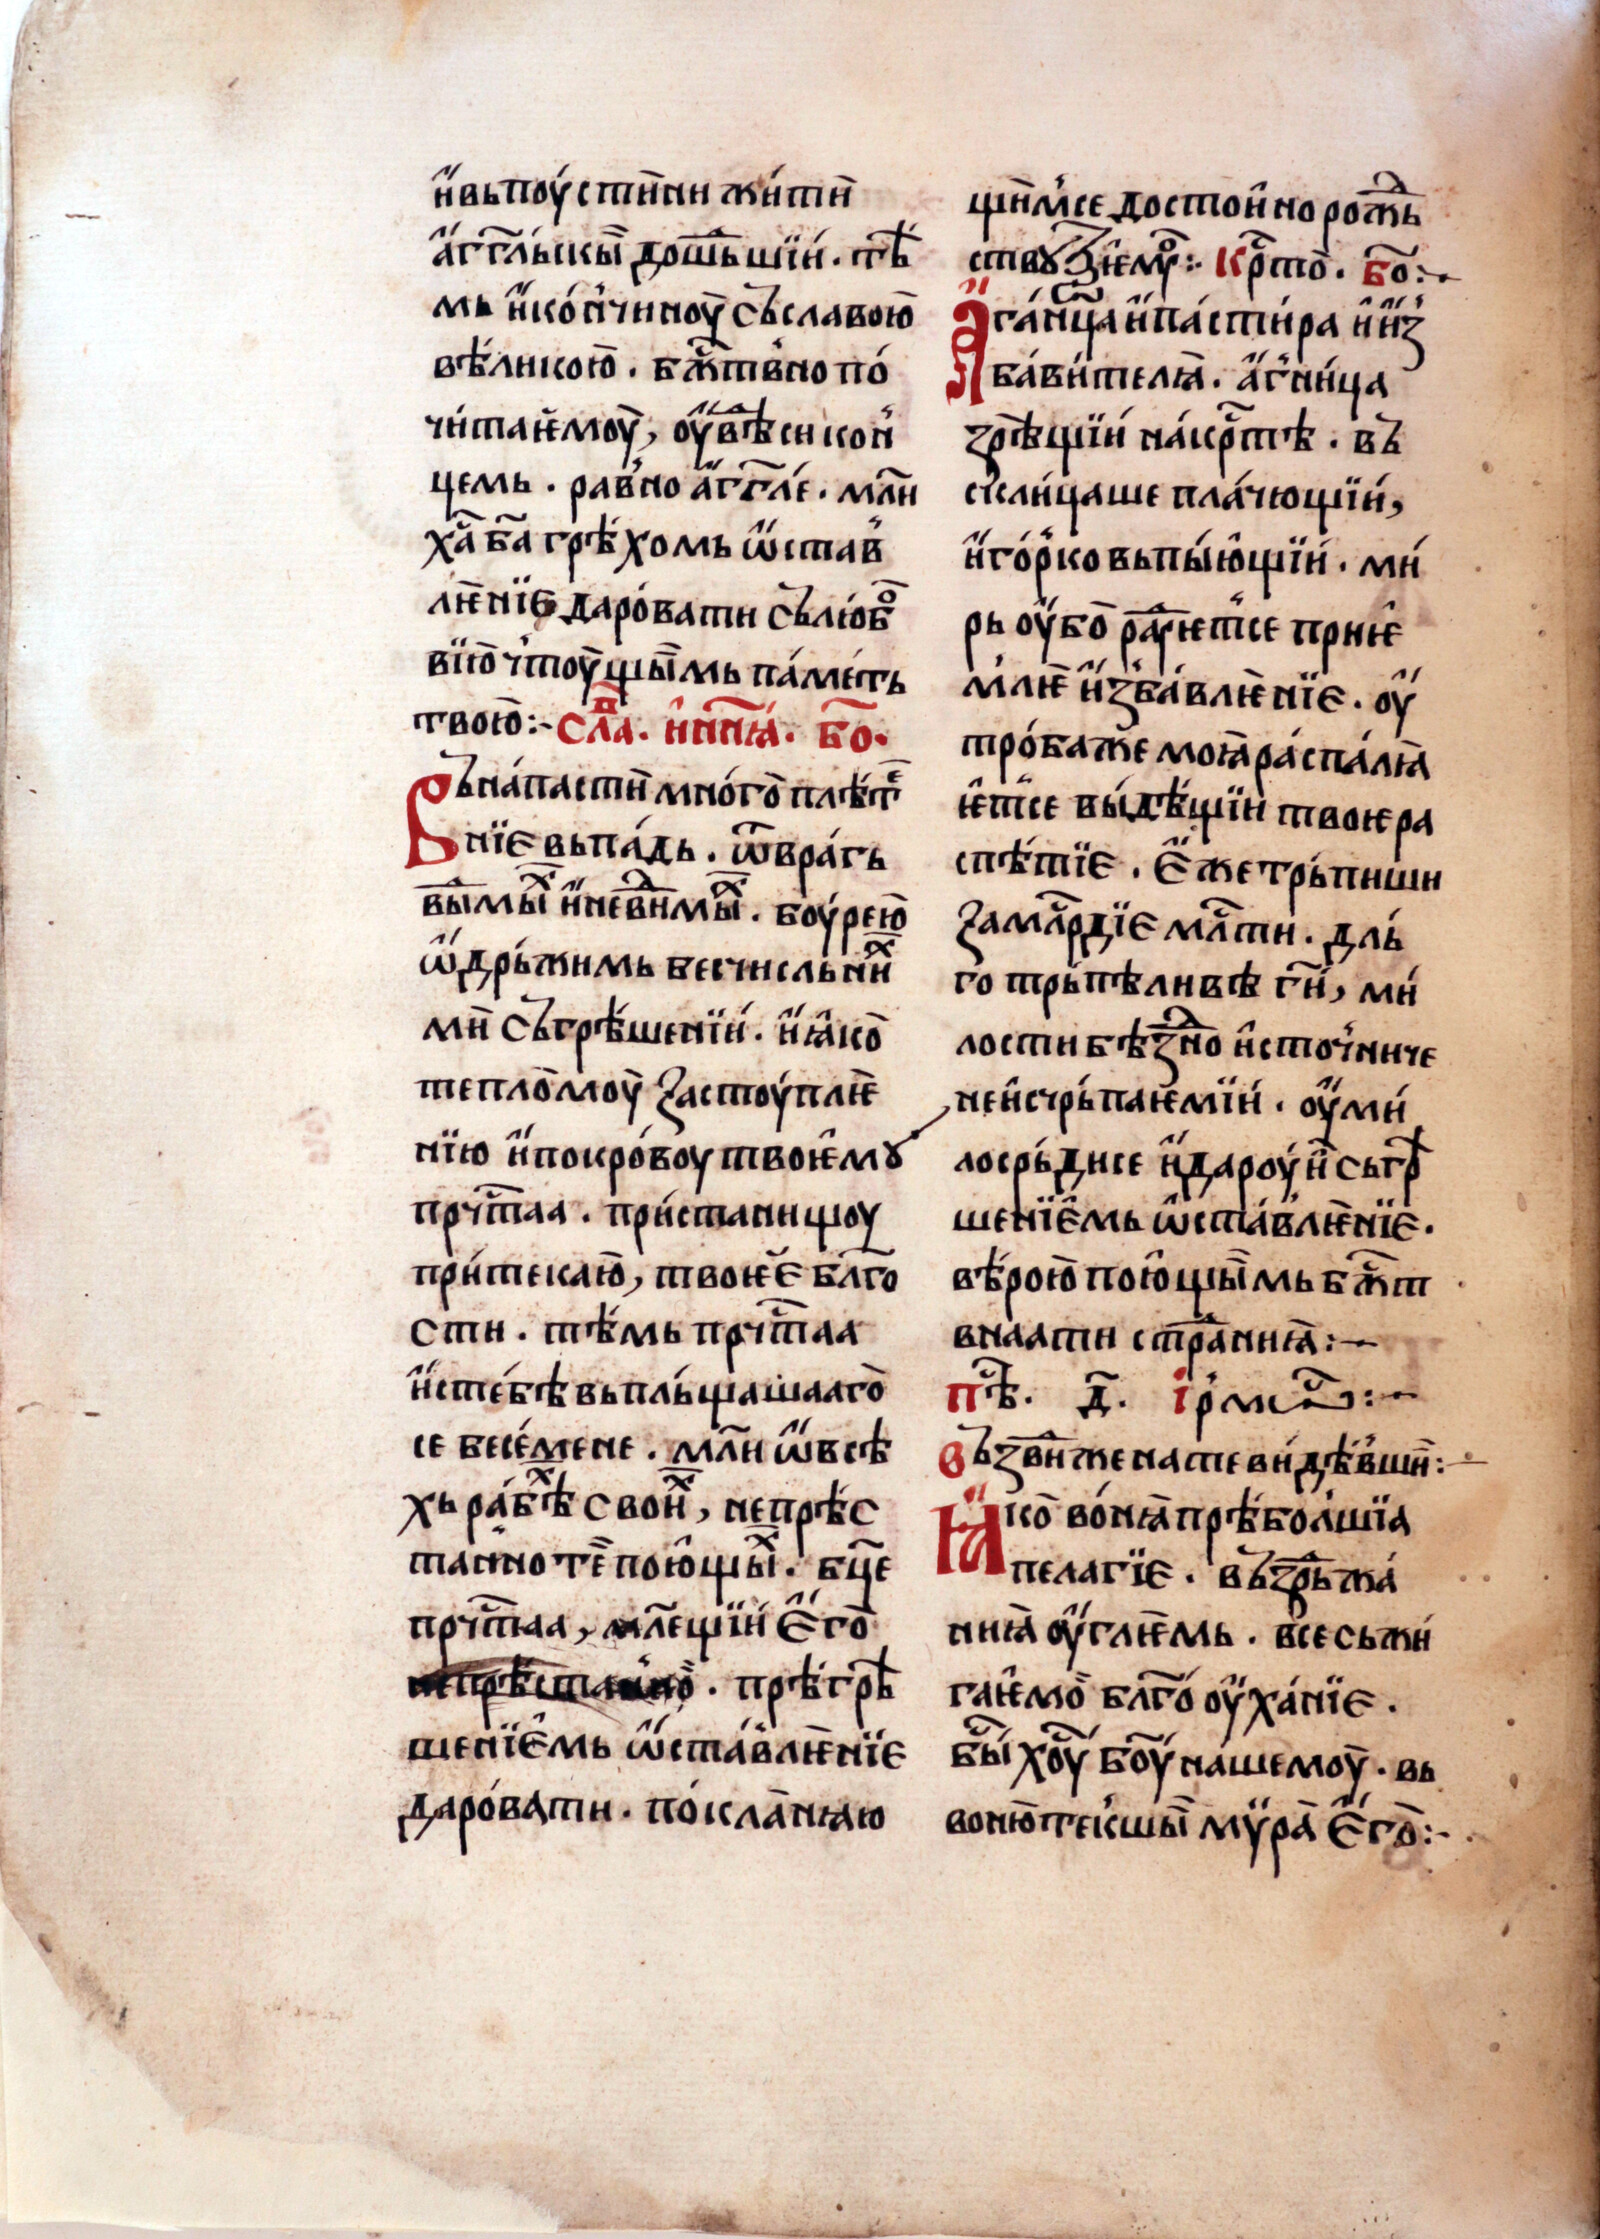 и҆вьпоу́стиннѝ жи́тїѝ
а҆гг҃льскы̏ дошь́шїи́. тѣ́
мь и҆ко́н'чиноу̀ съславою̀
вѣ́ликою̀. бж҃тв'но по́
чи́таѥмоу̀, оу҆вѣ́си кон'
цемь. рав'но а҆гг҃ле́. мл҃и
ха҃ ба҃ грѣ́хомь ѡ҆став'
лѥ́нїѥ даро́вати съ лю́бо
вїю̀ ч'тоу́щы̏мь па́меть
твою̀:- сла҃. и҆ нн҃ꙗ. бо҃.
Въ на́пастѝ мно́го̀ плѣ́те
нїе вьпа́дь. ѿвра́гь
ви҃мы̏х и҆неви҃мы̏х. боу́рею̀
ѡ҆дрь́жимь бесчисльни́х
мѝ съгрѣ́шенїи́. и҆ꙗ҆ко̀
тепло̀моу̀ застоу́плѥ̀
нїю и҆покро́воу твоѥ҆мꙋ
прч҃таа. при́станищоу
при́текаю̀, твоѥе̏ бл҃го
сти. тѣ́мь прч҃таа
и҆сте́бѣ вьплы́щашааго̀
се бесе́мене. мл҃и ѡ҆всѣ
хь ра́бѣх свои́х, непрѣ́с
тан'но те̏ пою҆щы̏х. бц҃е
прч҃таа, мл҃ещїи́ е҆го̀
непрѣ́стан'но̏. прѣ́грѣ
шенїе҆мь ѡ҆ста́влѥ̀нїе
даро́вати. по́кла̀нꙗю
щи̏м'се досто́и҆но рожь҃
ствꙋ зѥ҆мꙋ:· кр҃то. бо҃:·
А҆га́н'ца и҆па́сти́ра и҆ и҆з
ба́ви́телꙗ̀. а҆г'ни́ца
зрѣ́щїи́ на́кр҃тѣ. въ
скли́цаше пла́чющїи́,
и҆го́р'ко вьпы́ю҆щїи́. ми́
рь оу҆бо̀ ра́дѹѥт'се приѥ҆
м'лѥ̀ и҆зба́влѥ̀нїе. оу҆
тро́ба же моꙗ̀ ра́спа́лꙗ̀
ѥ҆т'се вы́дѣ́щїи твоѥ ра
спѣ́тїе. е҆же трь́пиши
за млр҃дїе мл҃ти. дль́
го трь́пѣливѣ ги҃, ми́
лости бѣз҃но и҆сточ'ниче
неи҆счрь́паѥмїи́. оу҆ми́
лосрь́дисе и҆дароу́и̏ сьгрѣ
шенїе҆мь ѡ҆ста́влѥ̀нїе.
вѣ́рою̀ пою҆щы̏мь бж҃т
внаати стра̏ниꙗ̀:-
пѣ҃с. д҃. і҆рмѡ҃с:-
въздви҃же на те ви́дѣ́вши̏:-
Ꙗ҆ко̀ во́нꙗ̀ прѣ́бол'шїа
пелагїе. въздрь҃жа́
нꙗ̀ оу҆глѥ̀мь. все сьжи́
гаѥ҆мо̏ бл҃го́ оу҆ха́нїе.
бы҃ хоу҃ боу҃ на́шемоу̀. вь
воню̀тек'шы̏ мѵра̀ е҆го̀:·